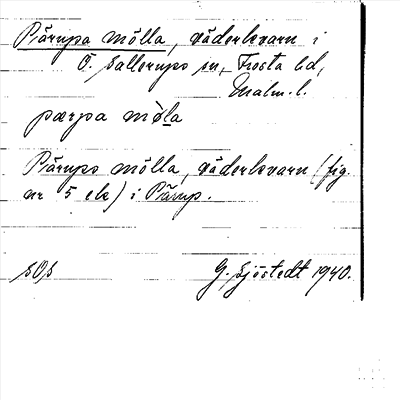 Pärupa mölla, väderkvarn i
Ö. Sallerups sn, Frosta hd,
Malm. l.
pærpa mòla
Pärups mölla, väderkvarn (fig.
nr 5 ek) i Pärup.
SOS G. Sjöstedt 1940.